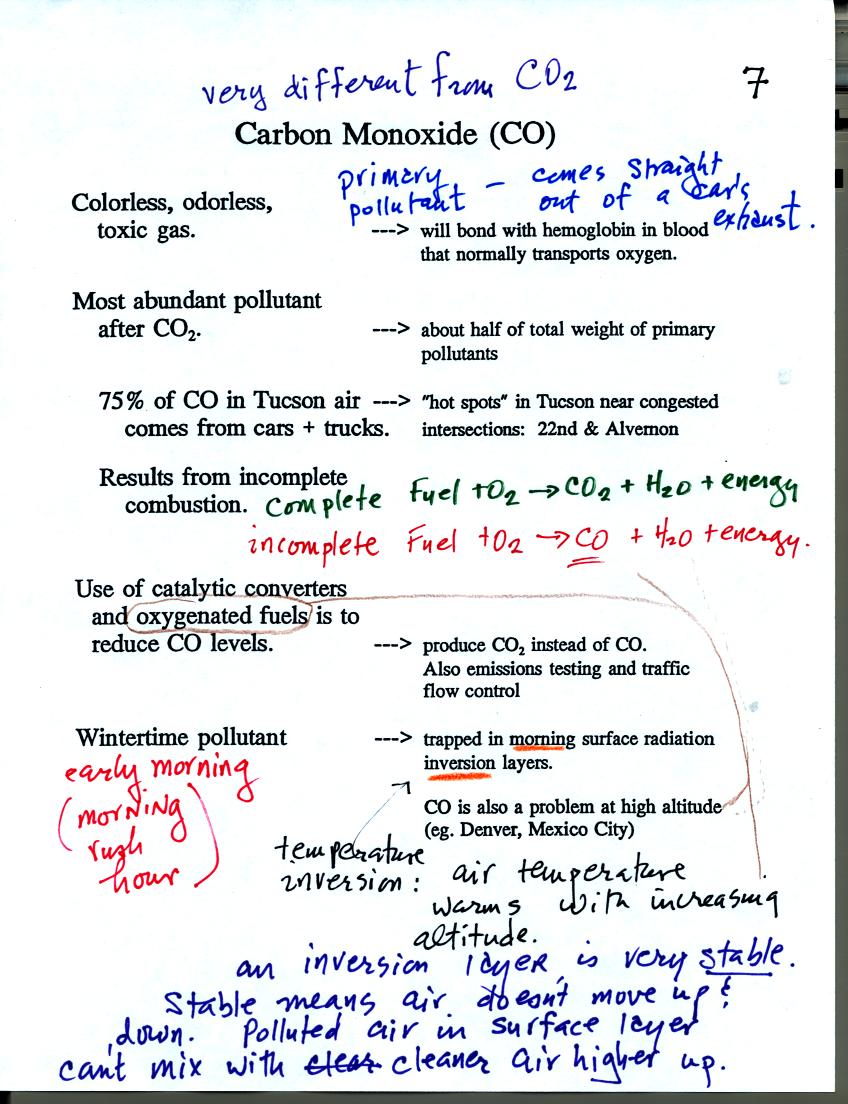 very different from CO2
7
Carbon Monoxide (CO)
primary — comes straight
pollutant out of a car's
exhaust.
Colorless, odorless,
toxic gas.
---> will bond with hemoglobin in blood
that normally transports oxygen.
Most abundant pollutant
after CO₂.
---> about half of total weight of primary
pollutants
75% of CO in Tucson air ---> "hot spots" in Tucson near congested
comes from cars + trucks. intersections: 22nd & Alvernon
Results from incomplete
combustion. complete Fuel + O2 → CO2 + H2O + energy
incomplete Fuel + O2 → CO + H2O + energy.
Use of catalytic converters
and oxygenated fuels is to
reduce CO levels. ---> produce CO₂ instead of CO.
Also emissions testing and traffic
flow control
Wintertime pollutant ---> trapped in morning surface radiation
inversion layers.
early morning
(morning
rush
hour)
CO is also a problem at high altitude
(eg. Denver, Mexico City)
temperature
inversion: air temperature
warms with increasing
altitude.
an inversion layer is very stable.
Stable means air doesn't move up &
down. Polluted air in surface layer
can't mix with clear cleaner air higher up.